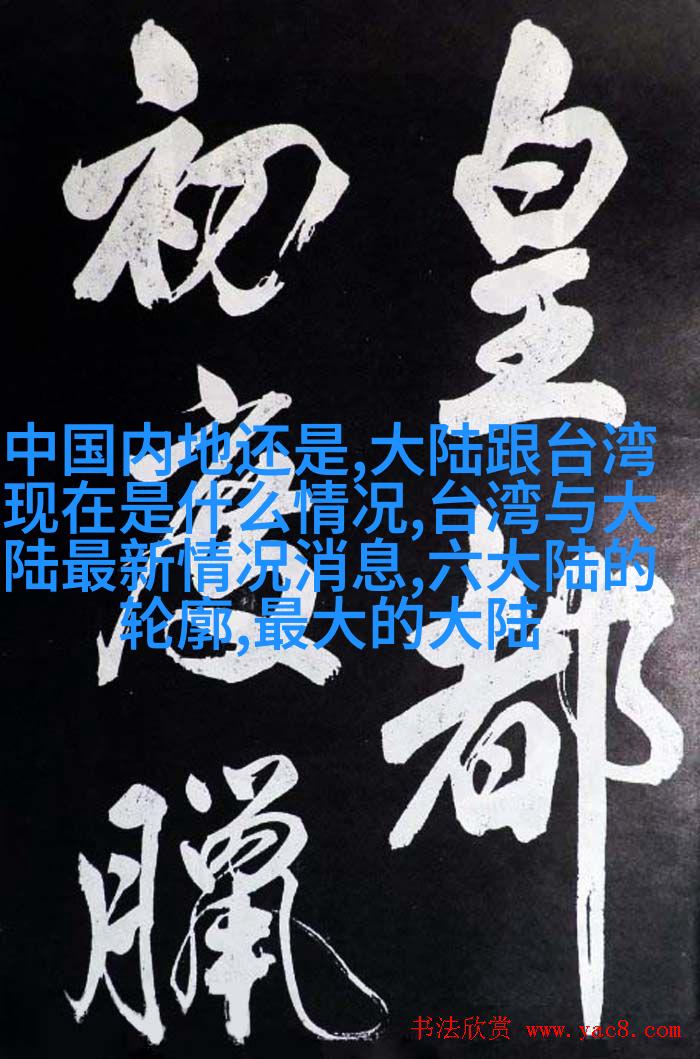 皇都
初度臘
中国内地还是,大陆跟台湾
现在是什么情况,台湾与大
陆最新情况消息,六大陆的
轮廓,最大的大陆
书法欣赏 www.yac8.com